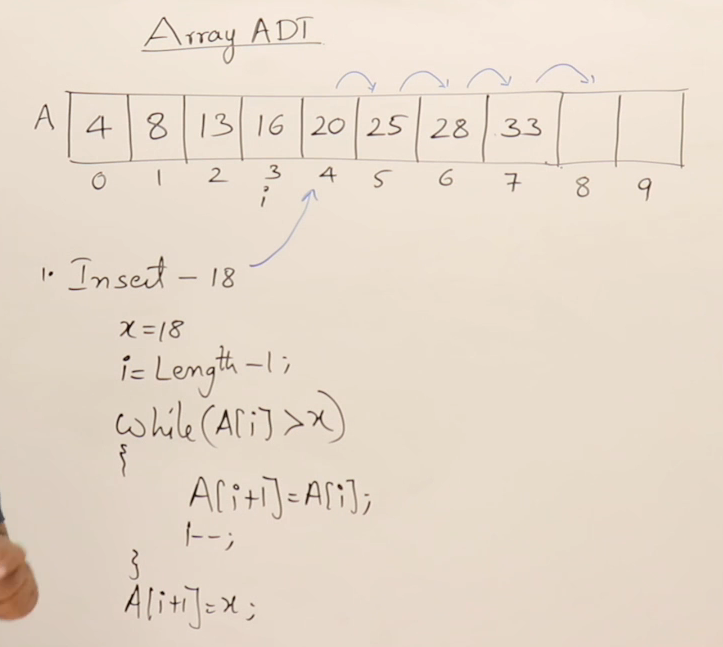 Array ADT
A 4 8 13 16 20 25 28 33
0 1 2 3 4 5 6 7 8 9
i
1. Insert - 18
x=18
i= Length-1;
while(A[i]>x)
{
A[i+1]=A[i];
i--;
}
A[i+1]=x;